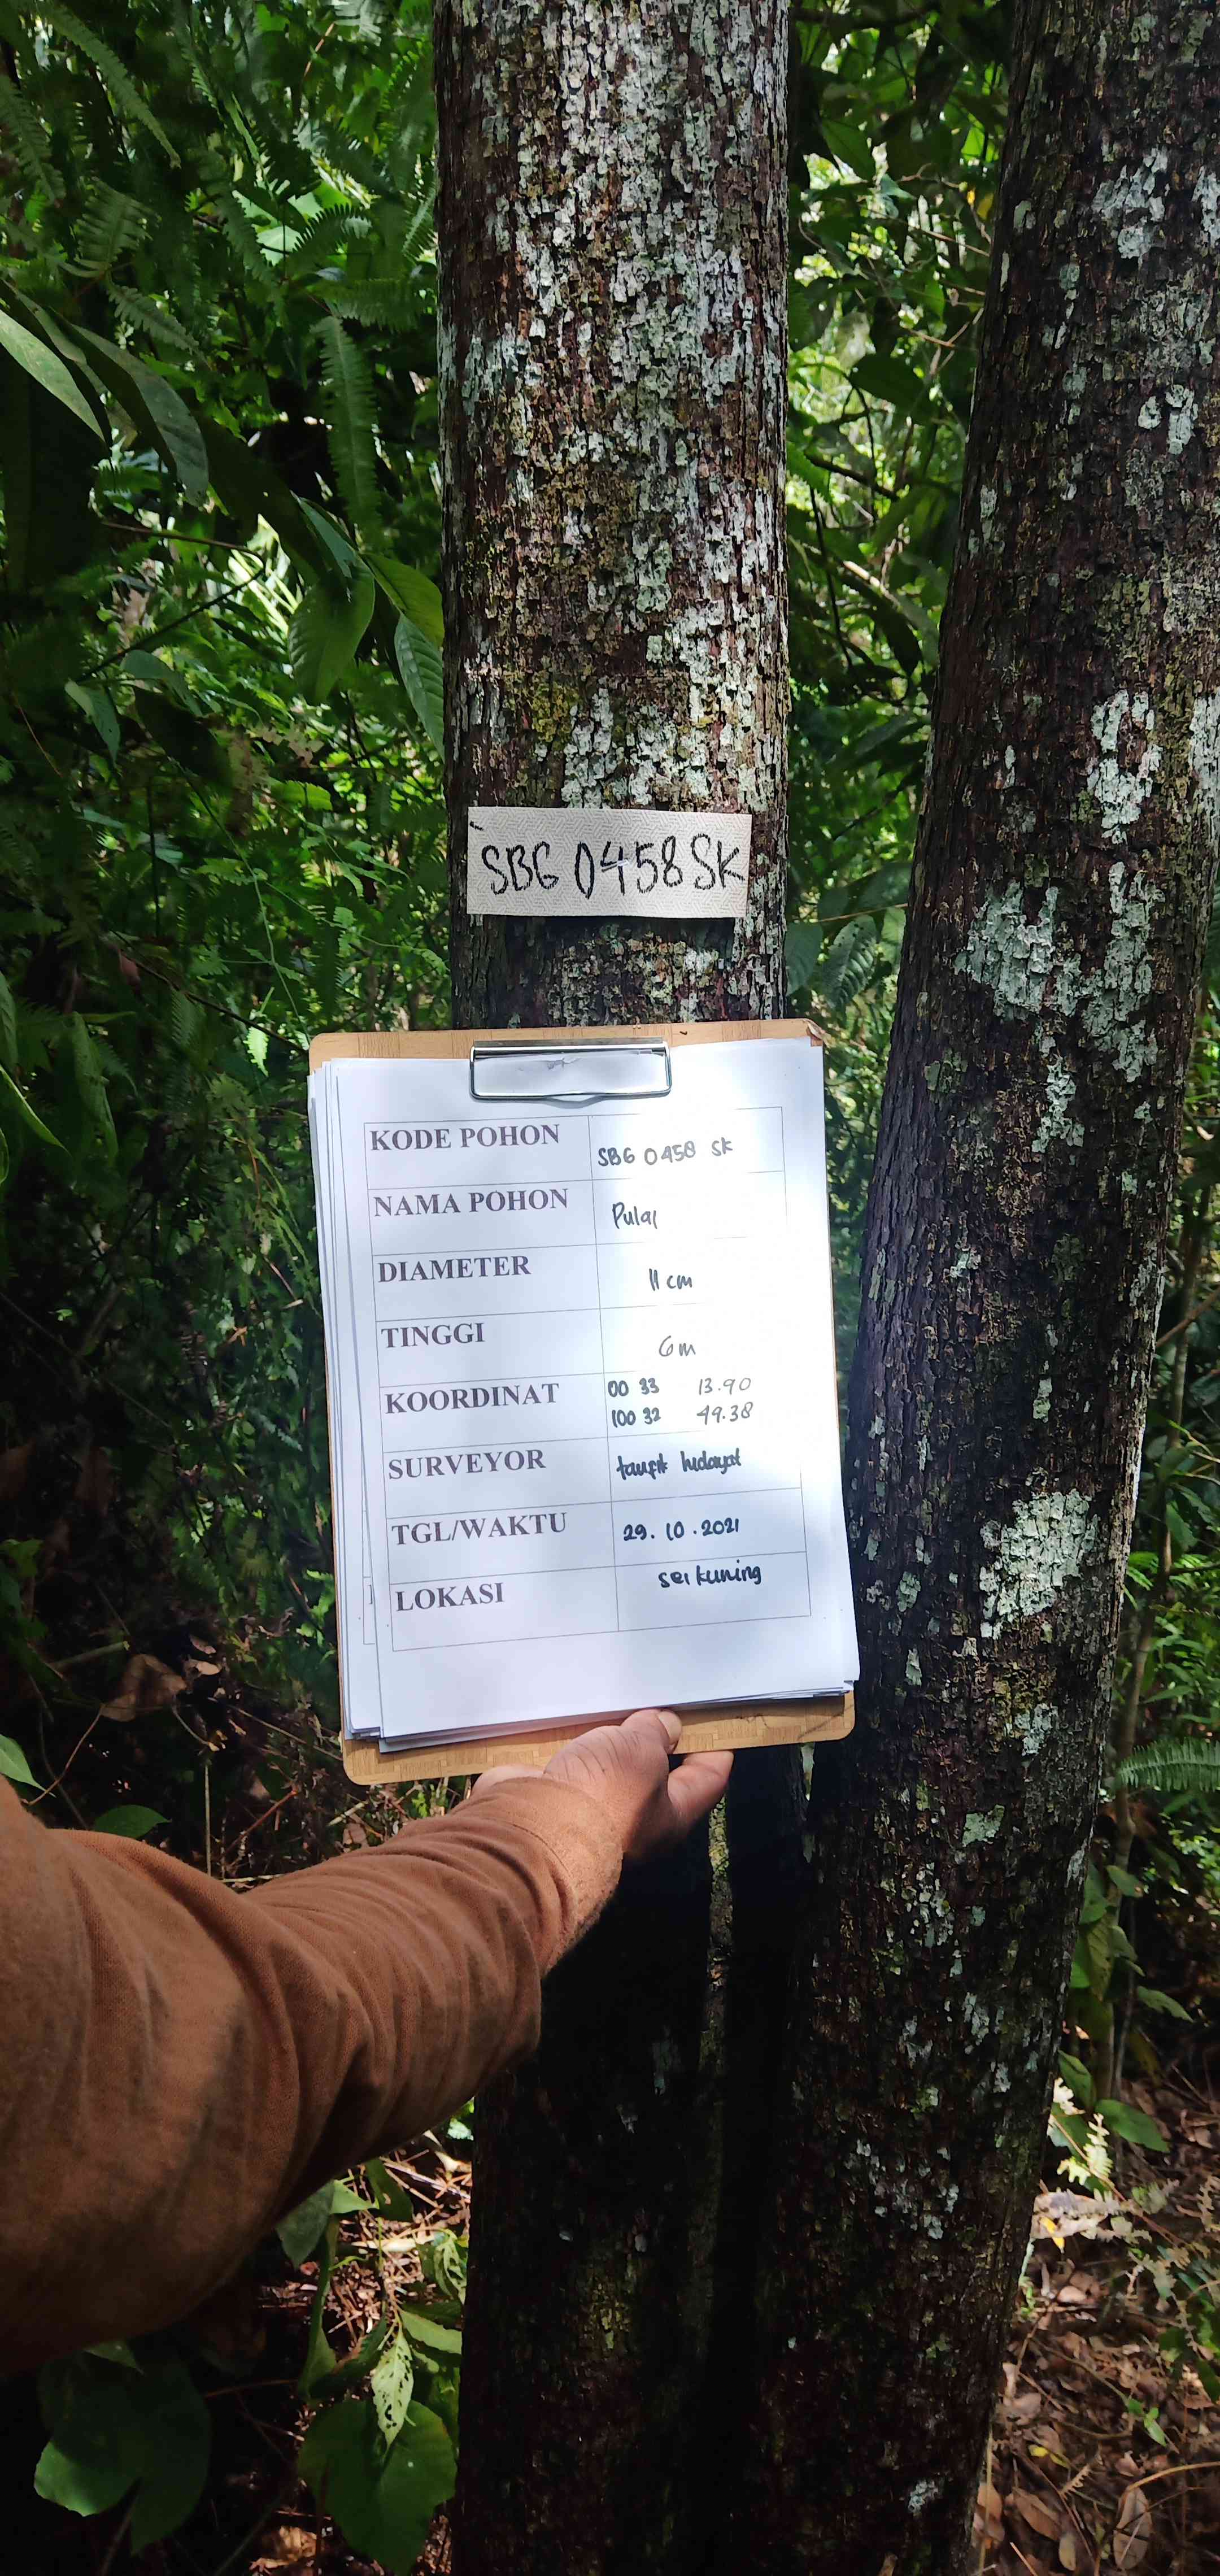 SBG 0458 SK
KODE POHON SBG 0458 SK
NAMA POHON Pulai
DIAMETER 11 cm
TINGGI 6 m
KOORDINAT 00 33 13.90
100 32 49.38
SURVEYOR taufik hidayat
TGL/WAKTU 29.10.2021
LOKASI sei kuning